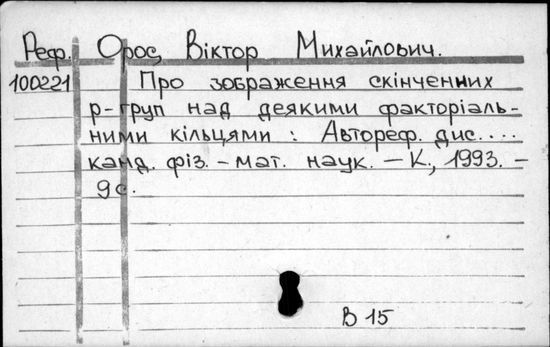 Реф. Орос, Віктор Михайлович.
100221 Про зображення скінченних
р-груп над деякими факторіаль-
ними кільцями : Автореф. дис. ...
канд. фіз. - мат. наук. - К., 1993. -
9 с.
В 15